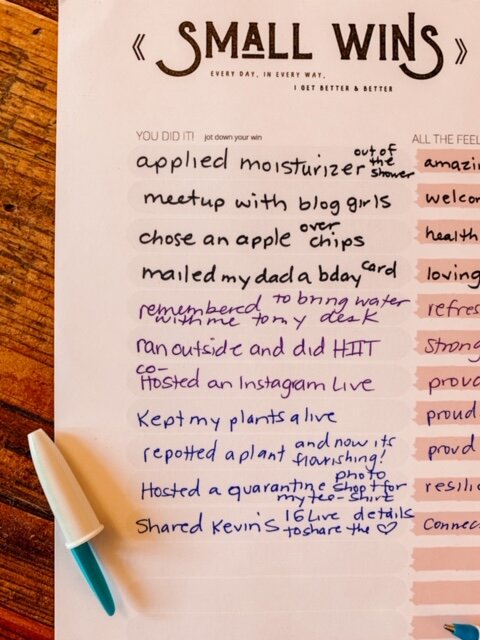 « SMALL WINS »
EVERY DAY, IN EVERY WAY,
I GET BETTER & BETTER
YOU DID IT! jot down your win ALL THE FEEL
applied moisturizer out of the shower amazi
meetup with blog girls welcom
chose an apple over chips health
mailed my dad a bday card loving
remembered to bring water with me to my desk refres
ran outside and did HIIT strong
co-Hosted an Instagram Live proud
Kept my plants alive proud
repotted a plant and now its flourishing! proud
Hosted a quarantine photo shoot for my tee-shirt resilie
Shared Kevin's IG Live details to share the ♡ Connec